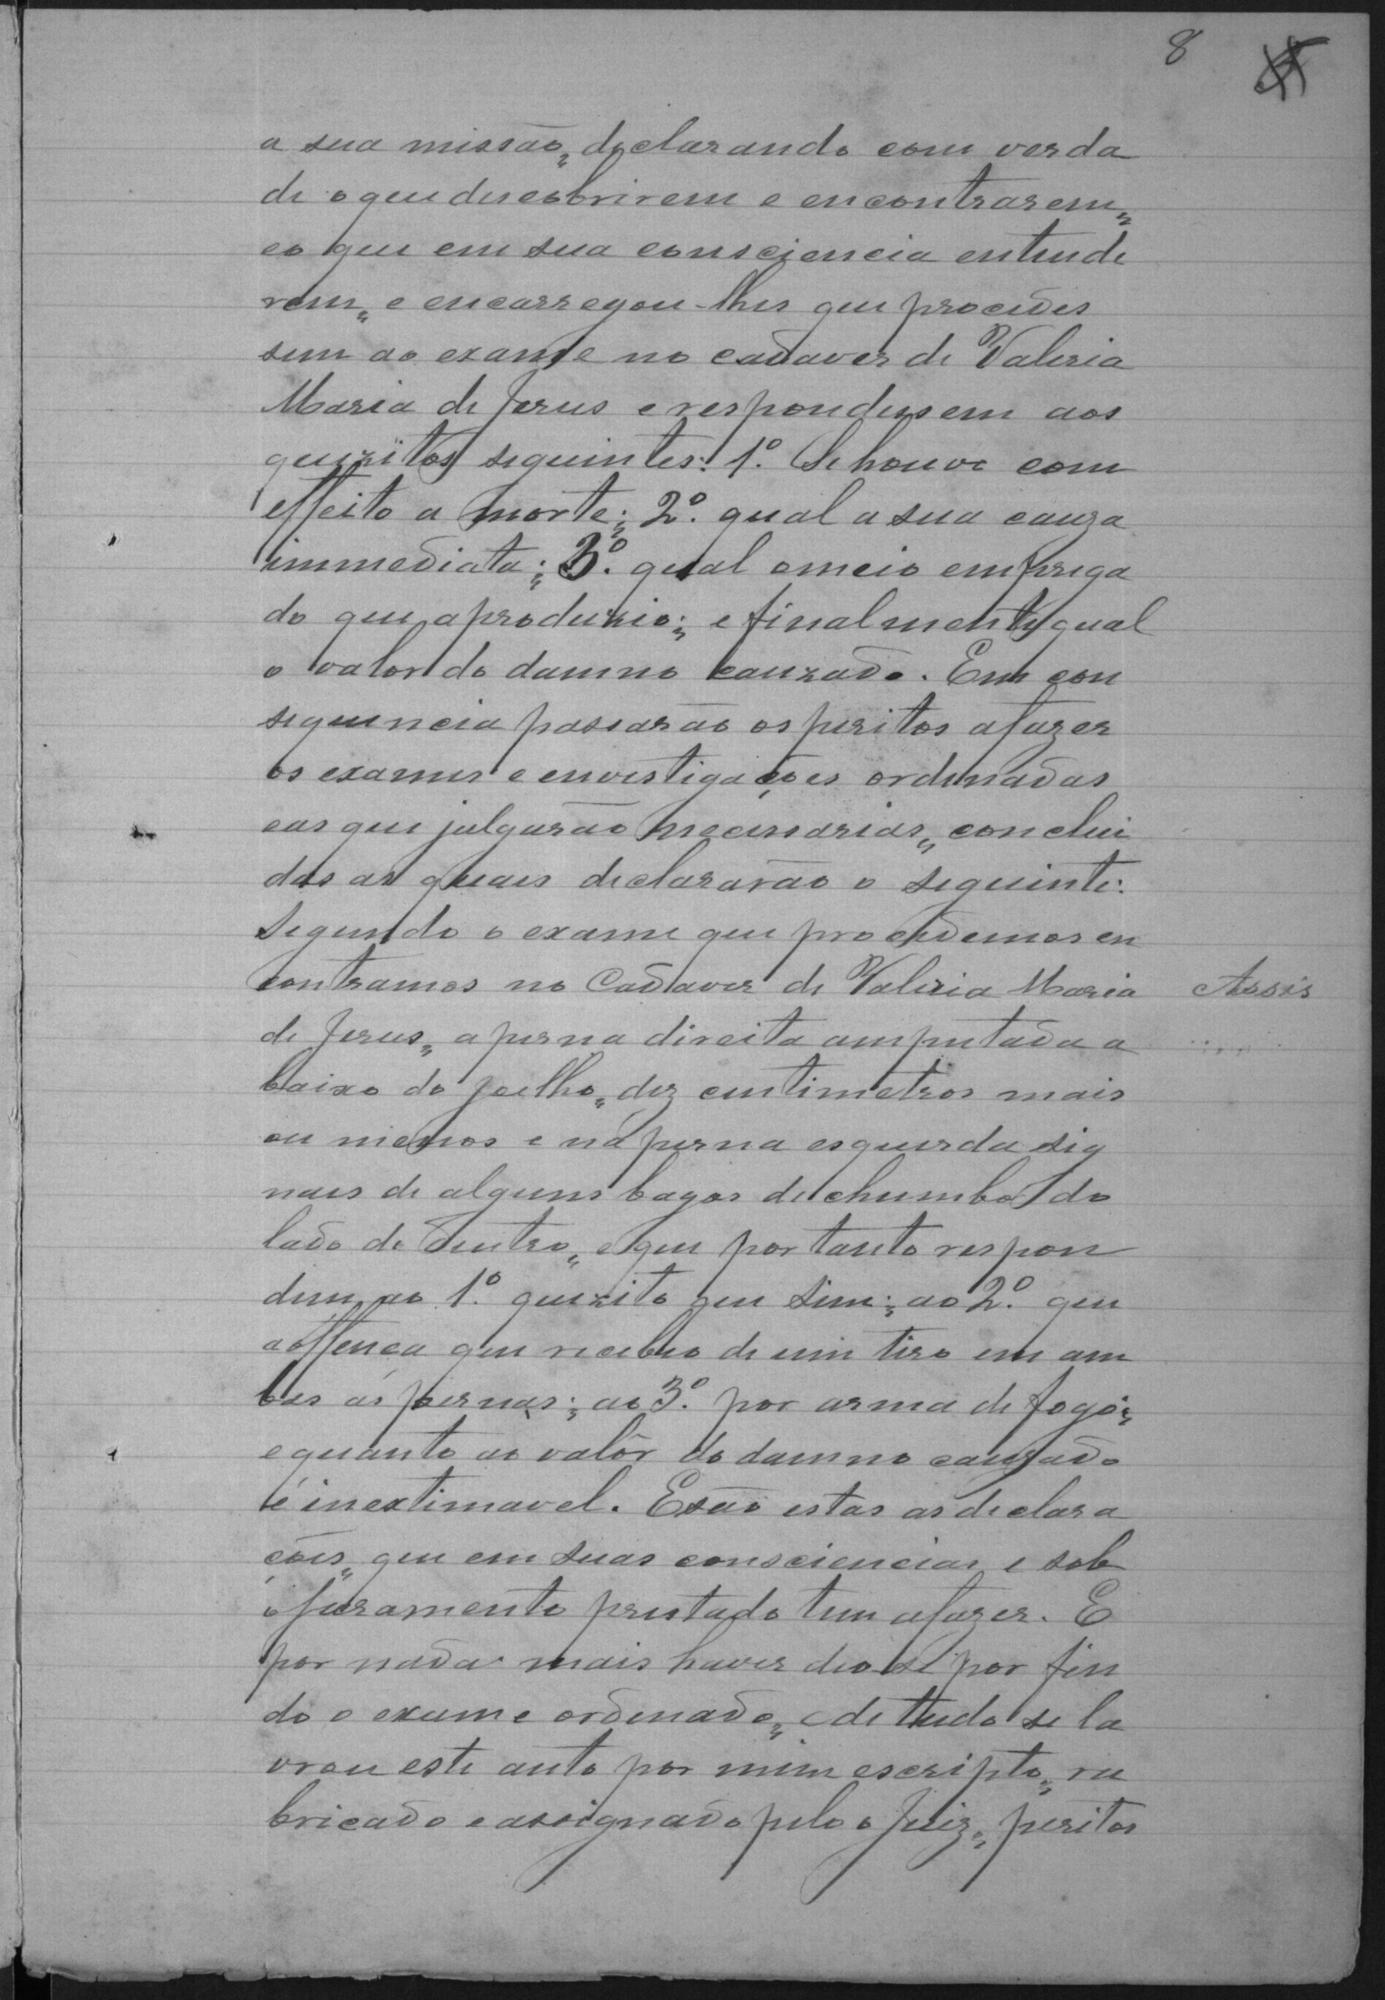 8
a sua missão, declarando com verda
de oque descobrirem e encontrarem,
eo que em sua consciencia entende
rem, e encarregou-lhes que procedes
sem ao exame no cadaver de Valeria
Maria de Jesus e respondessem aos
quizitos seguintes: 1º. Se houve com
effeito a morte; 2º. qual a sua cauza
immediata; 3º. qual omeio emprega
do que aproduzio; e finalmente qual
o valor do damno cauzado. Em con
sequencia passarão os peritos afazer
os exames e envestigações ordenadas
eas que julgarão necessarias, conclui
das as quaes declararão o seguinte:
Segundo o exame que procedemos en
contramos no Cadaver de Valeria Maria
Assis
de Jesus, a perna direita amputada a
baixo do joelho, dez centimetros mais
ou menos e na perna esquerda sig
naes de alguns bagos de chumbo do
lado de dentro, eque portanto respon
dem ao 1º. quizito que sim; ao 2º. que
a offença que recebeo de um tiro em am
bas as pernas; ao 3º. por arma de fogo;
equanto ao valôr do damno cauzado
é inextimavel. Esão estas as declara
ções, que em suas consciencias e sob
o juramento prestado tem afazer. E
por nada mais haver deo-se por fin
do o exame ordenado, e de tudo se la
vrou este auto por mim escripto, ru
bricado eassignado pelo o Juiz, peritos